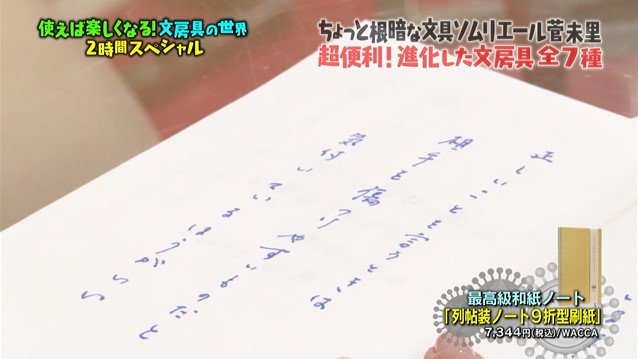 使えば楽しくなる!文房具の世界
2時間スペシャル
ちょっと根暗な文具ソムリエール菅未里
超便利!進化した文房具 全7種
正しいことを言うときは
相手を傷つけやすいものだと
気付いているほうがいい
最高級和紙ノート
「列帖装ノート9折型刷紙」
7,344円(税込)/WACCA